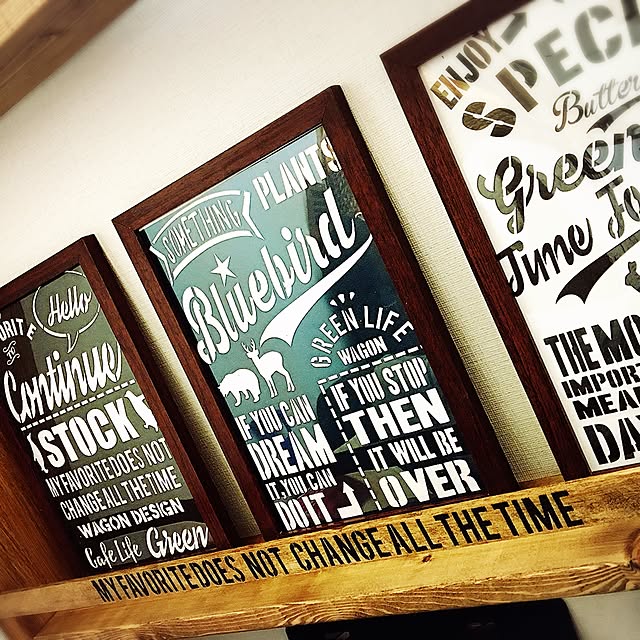 Hello
Continue
STOCK
MY FAVORITE DOES NOT
CHANGE ALL THE TIME
WAGON DESIGN
Cafe Life Green
SOMETHING
PLANTS
Bluebird
GREEN LIFE
WAGON
IF YOU CAN
DREAM
IT, YOU CAN
DO IT
IF YOU STOP
THEN
IT WILL BE
OVER
ENJOY
Green
Time
THE
MY FAVORITE DOES NOT CHANGE ALL THE TIME